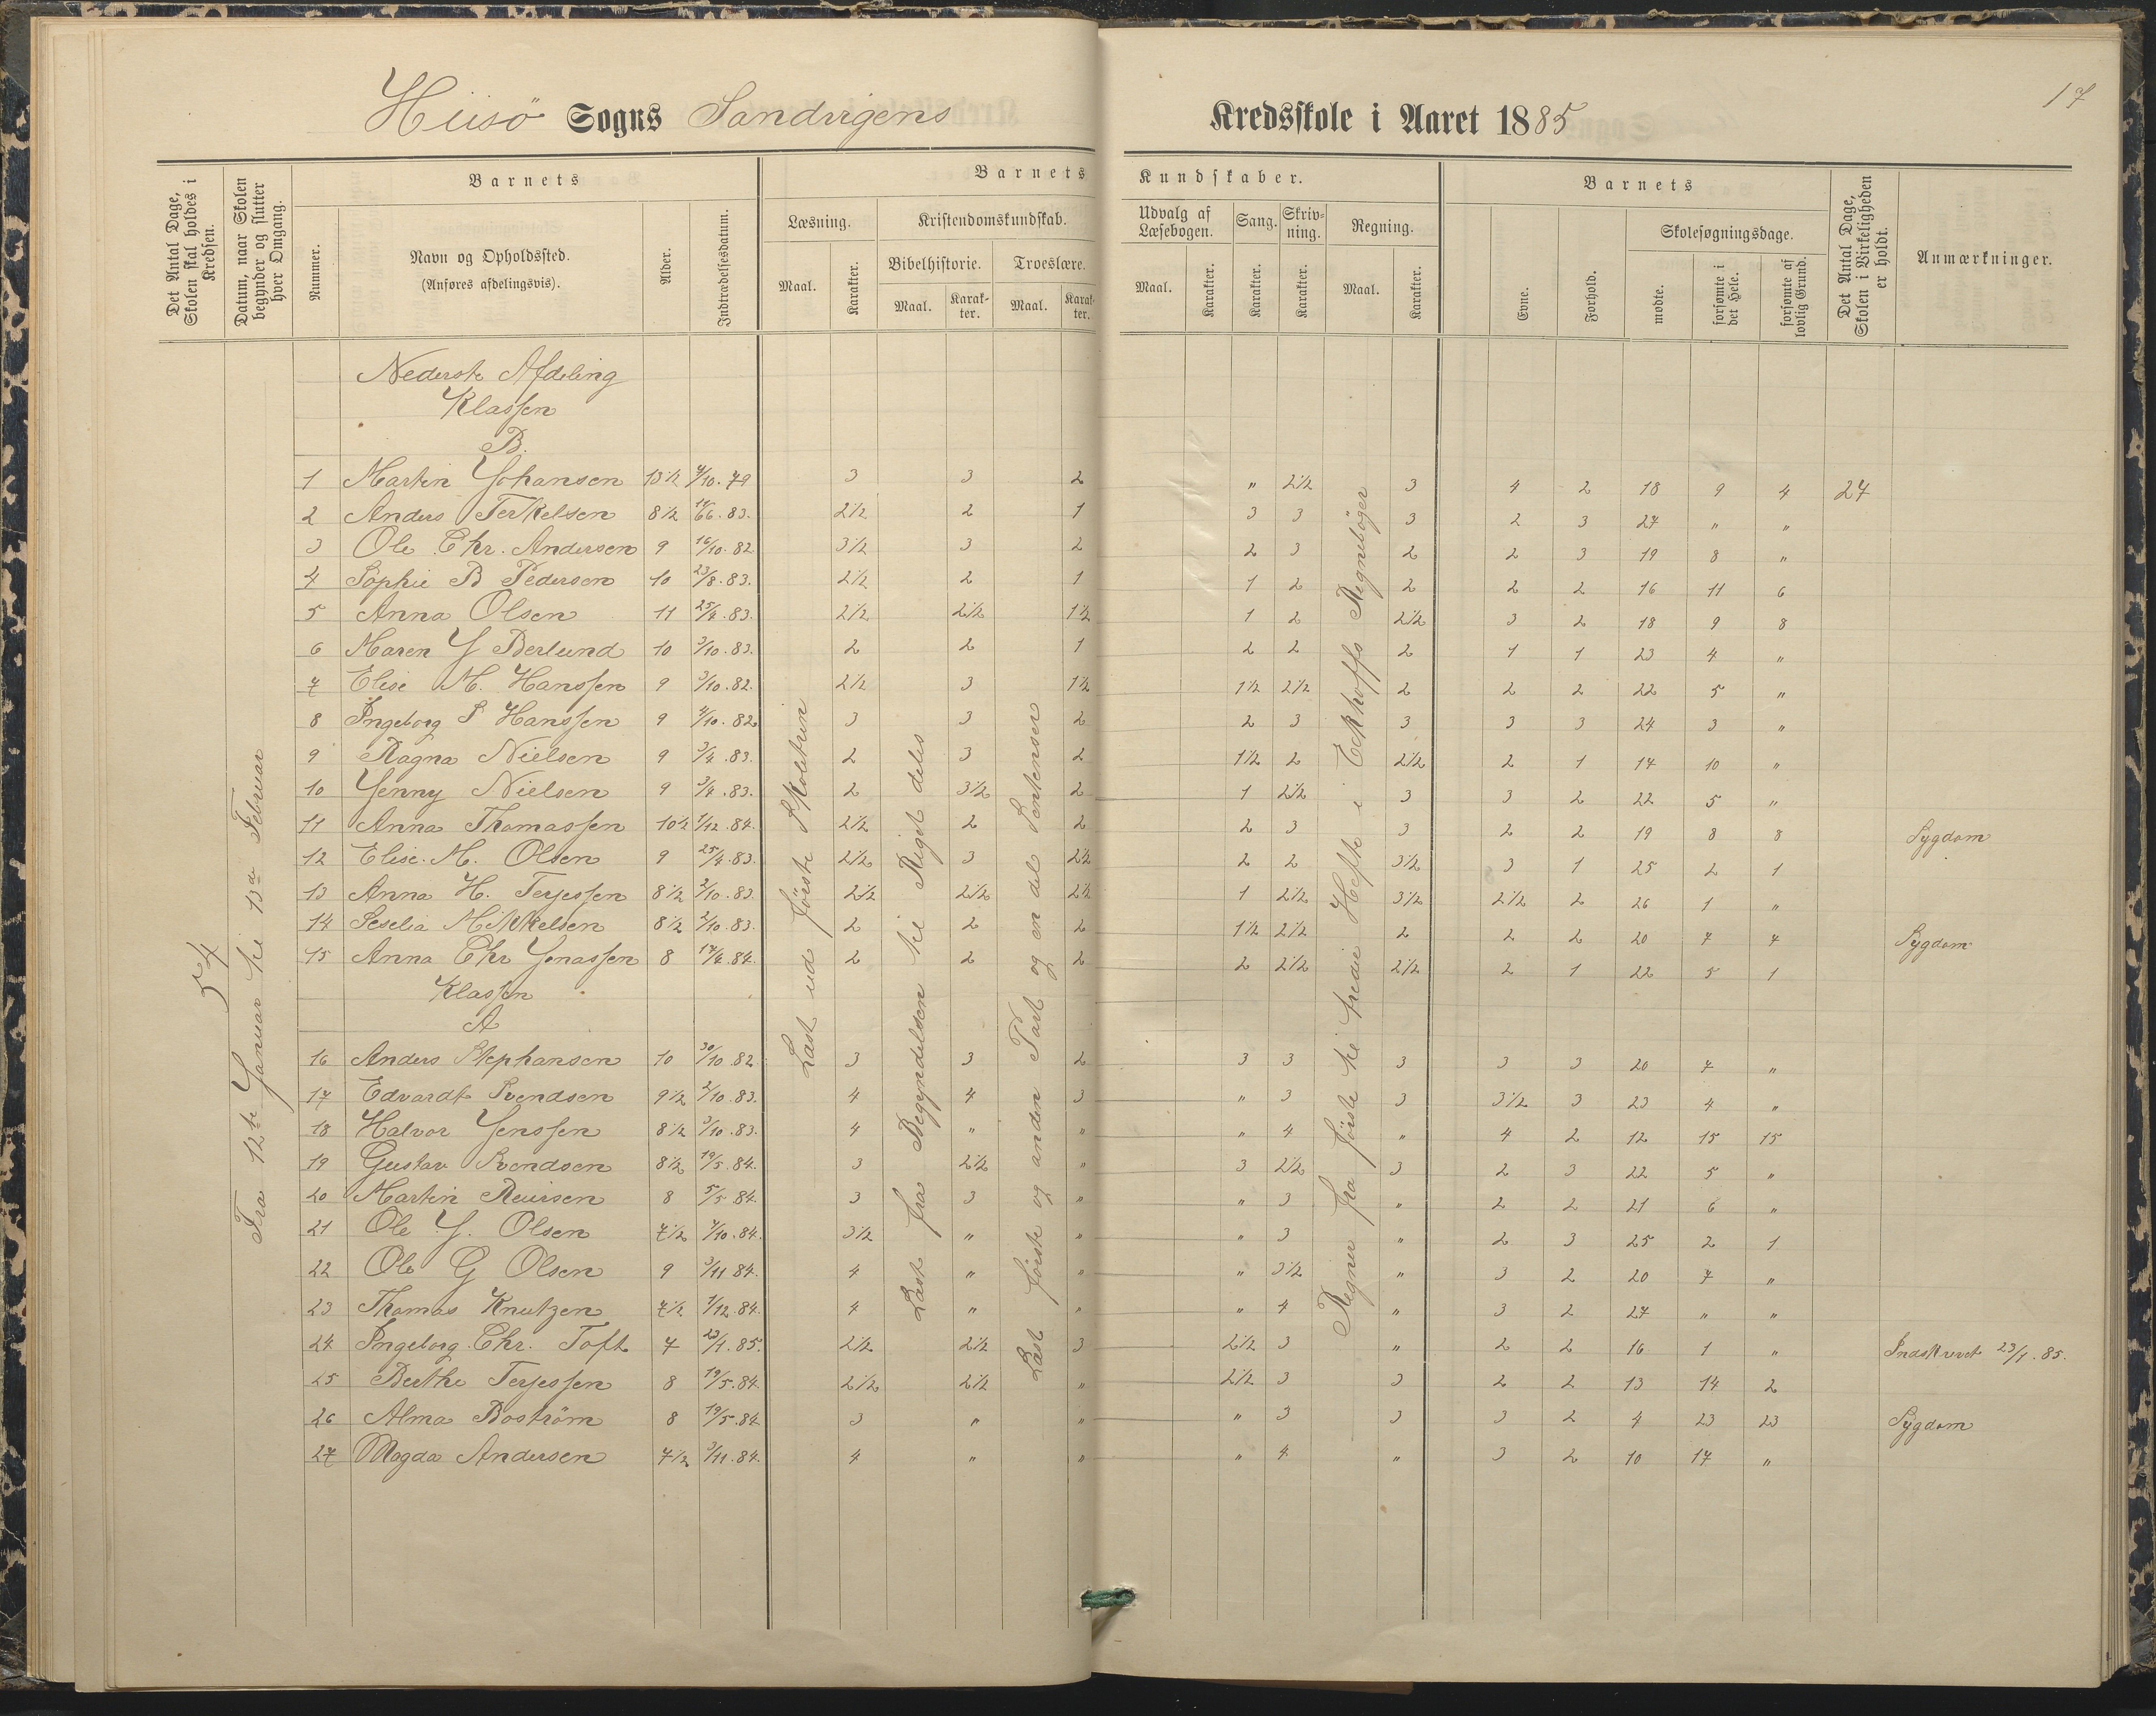 Hiisö Sogns Sandvigens Kredsskole i Aaret 1885
17
Det Antal Dage, Skolen skal holdes i Kredsen.
Datum, naar Skolen begynder og slutter hver Omgang.
Barnets
Nummer.
Navn og Opholdssted.
(Anføres afdelingsvis).
Alder.
Indtrædelsesdatum.
Barnets Kundskaber.
Læsning.
Maal. Karakter.
Kristendomskundskab.
Bibelhistorie. Troeslære.
Maal. Karakter. Maal. Karakter.
Udvalg af Læsebogen.
Maal. Karakter.
Sang.
Karakter.
Skrivning.
Karakter.
Regning.
Maal. Karakter.
Barnets
Evne.
Forhold.
Skolesøgningsdage.
mødte.
forsømte i det Hele.
forsømte af lovlig Grund.
Det Antal Dage, Skolen i Virkeligheden er holdt.
Anmærkninger.
54
Fra 12te Januar til 13de Februar
Læst ud første Skoletrin
Læst fra Begyndelsen til Riget deles
Læst første og anden Part og en del Sentenser
Regner fra første til tredie Hefte i Eckhoffs Regnebøger
Nederste Afdeling
Klassen
B.
1 Martin Johansen 13 1/2 4/10.79 3 3 2 " 2 1/2 3 4 2 18 9 4 27
2 Anders Terkelsen 8 1/2 11/6.83. 2 1/2 2 1 3 3 3 2 3 27 " "
3 Ole Chr. Andersen 9 16/10.82 3 1/2 3 2 2 3 2 2 3 19 8 "
4 Sophie B Pedersen 10 23/8.83. 2 1/2 2 1 1 2 2 2 2 16 11 6
5 Anna Olsen 11 25/4.83. 2 1/2 2 1/2 1 1/2 1 2 2 1/2 3 2 18 9 8
6 Maren J Berlund 10 3/10.83. 2 2 1 2 2 2 1 1 23 4 "
7 Elise M. Hanssen 9 3/10.82. 2 1/2 3 1 1/2 1 1/2 2 1/2 2 2 2 22 5 "
8 Ingeborg S Hanssen 9 4/10.82 3 3 2 2 3 3 3 3 24 3 "
9 Ragna Nielsen 9 3/4.83. 2 3 2 1 1/2 2 2 1/2 2 1 17 10 "
10 Jenny Nielsen 9 3/4.83. 2 3 1/2 2 1 2 1/2 3 3 2 22 5 "
11 Anna Thomassen 10 1/2 1/12.84. 2 1/2 2 2 2 3 3 2 2 19 8 8 Sygdom
12 Elise. M. Olsen 9 25/4.83. 2 1/2 3 2 1/2 2 2 3 1/2 3 1 25 2 1
13 Anna H. Terjessen 8 1/2 2/10.83. 2 1/2 2 1/2 2 1/2 1 2 1/2 3 1/2 2 1/2 2 26 1 "
14 Seselia Mikkelsen 8 1/2 2/10.83. 2 2 2 1 1/2 2 1/2 2 2 2 20 7 7 Sygdom
15 Anna Chr Jonassen 8 17/4.84. 2 2 2 2 2 1/2 2 1/2 2 1 22 5 1
Klassen
A
16 Anders Stephansen 10 30/10.82. 3 3 2 3 3 3 3 3 20 7 "
17 Edvardt Svendsen 9 1/2 2/10.83. 4 4 3 " 3 3 3 1/2 3 23 4 "
18 Halvor Jenssen 8 1/2 3/10.83. 4 " " " 4 " 4 2 12 15 15
19 Gustav Svendsen 8 1/2 19/5.84. 3 2 1/2 " 3 2 1/2 3 2 3 22 5 "
20 Martin Reiersen 8 5/5 84. 3 3 " " 3 " 2 2 21 6 "
21 Ole J. Olsen 7 1/2 7/10.84. 3 1/2 " " " 3 " 2 3 25 2 1
22 Ole G Olsen 9 3/11 84. 4 " " " 3 1/2 " 3 2 20 7 "
23 Thomas Knutzen 7 1/2 1/12.84. 4 " " " 4 " 3 2 27 " "
24 Ingeborg Chr. Toft 7 23/1.85. 2 1/2 2 1/2 3 2 1/2 3 " 2 2 16 1 " Indskrevet 23/1.85.
25 Berthe Terjessen 8 19/5.84. 2 1/2 2 1/2 " 2 1/2 3 3 2 2 13 14 2
26 Alma Boström 8 19/5.84 3 " " " 3 3 3 2 4 23 23 Sygdom
27 Magda Andersen 7 1/2 3/11.84. 4 " " " 4 " 3 2 10 17 "